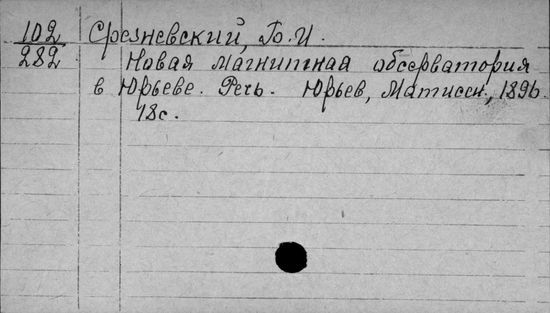 102 Срезневский, Б. И.
282 Новая магнитная обсерватория
в Юрьеве. Речь. Юрьев, Матисен, 1896.
18 с.